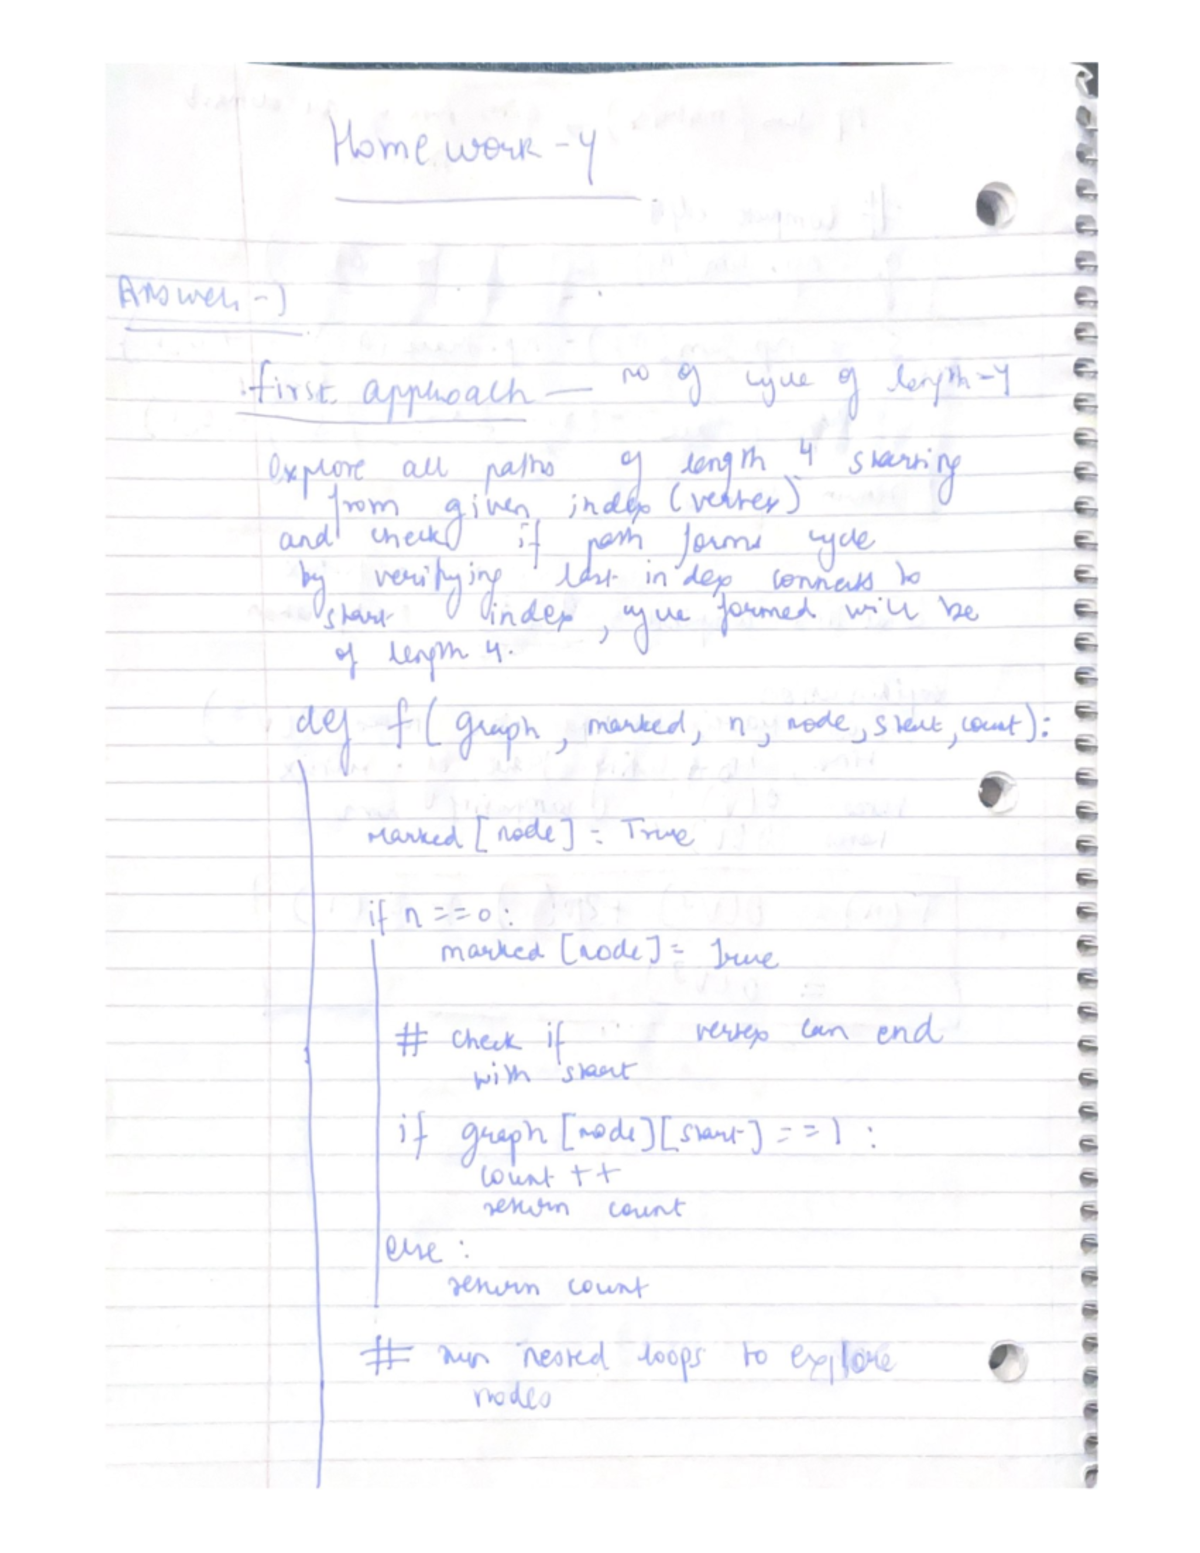 Homework-4
Answer-1
first approach — no of cycle of length-4
explore all paths of length 4 starting
from given index (vertex)
and check if path forms cycle
by verifying last index connects to
start index, cycle formed will be
of length 4.
def f( graph, marked, n, node, start, count):
marked [node] = True
if n==0:
marked [node] = True
# check if vertex can end
with start
if graph [node][start] ==1 :
count ++
return count
else :
return count
# run nested loops to explore
nodes